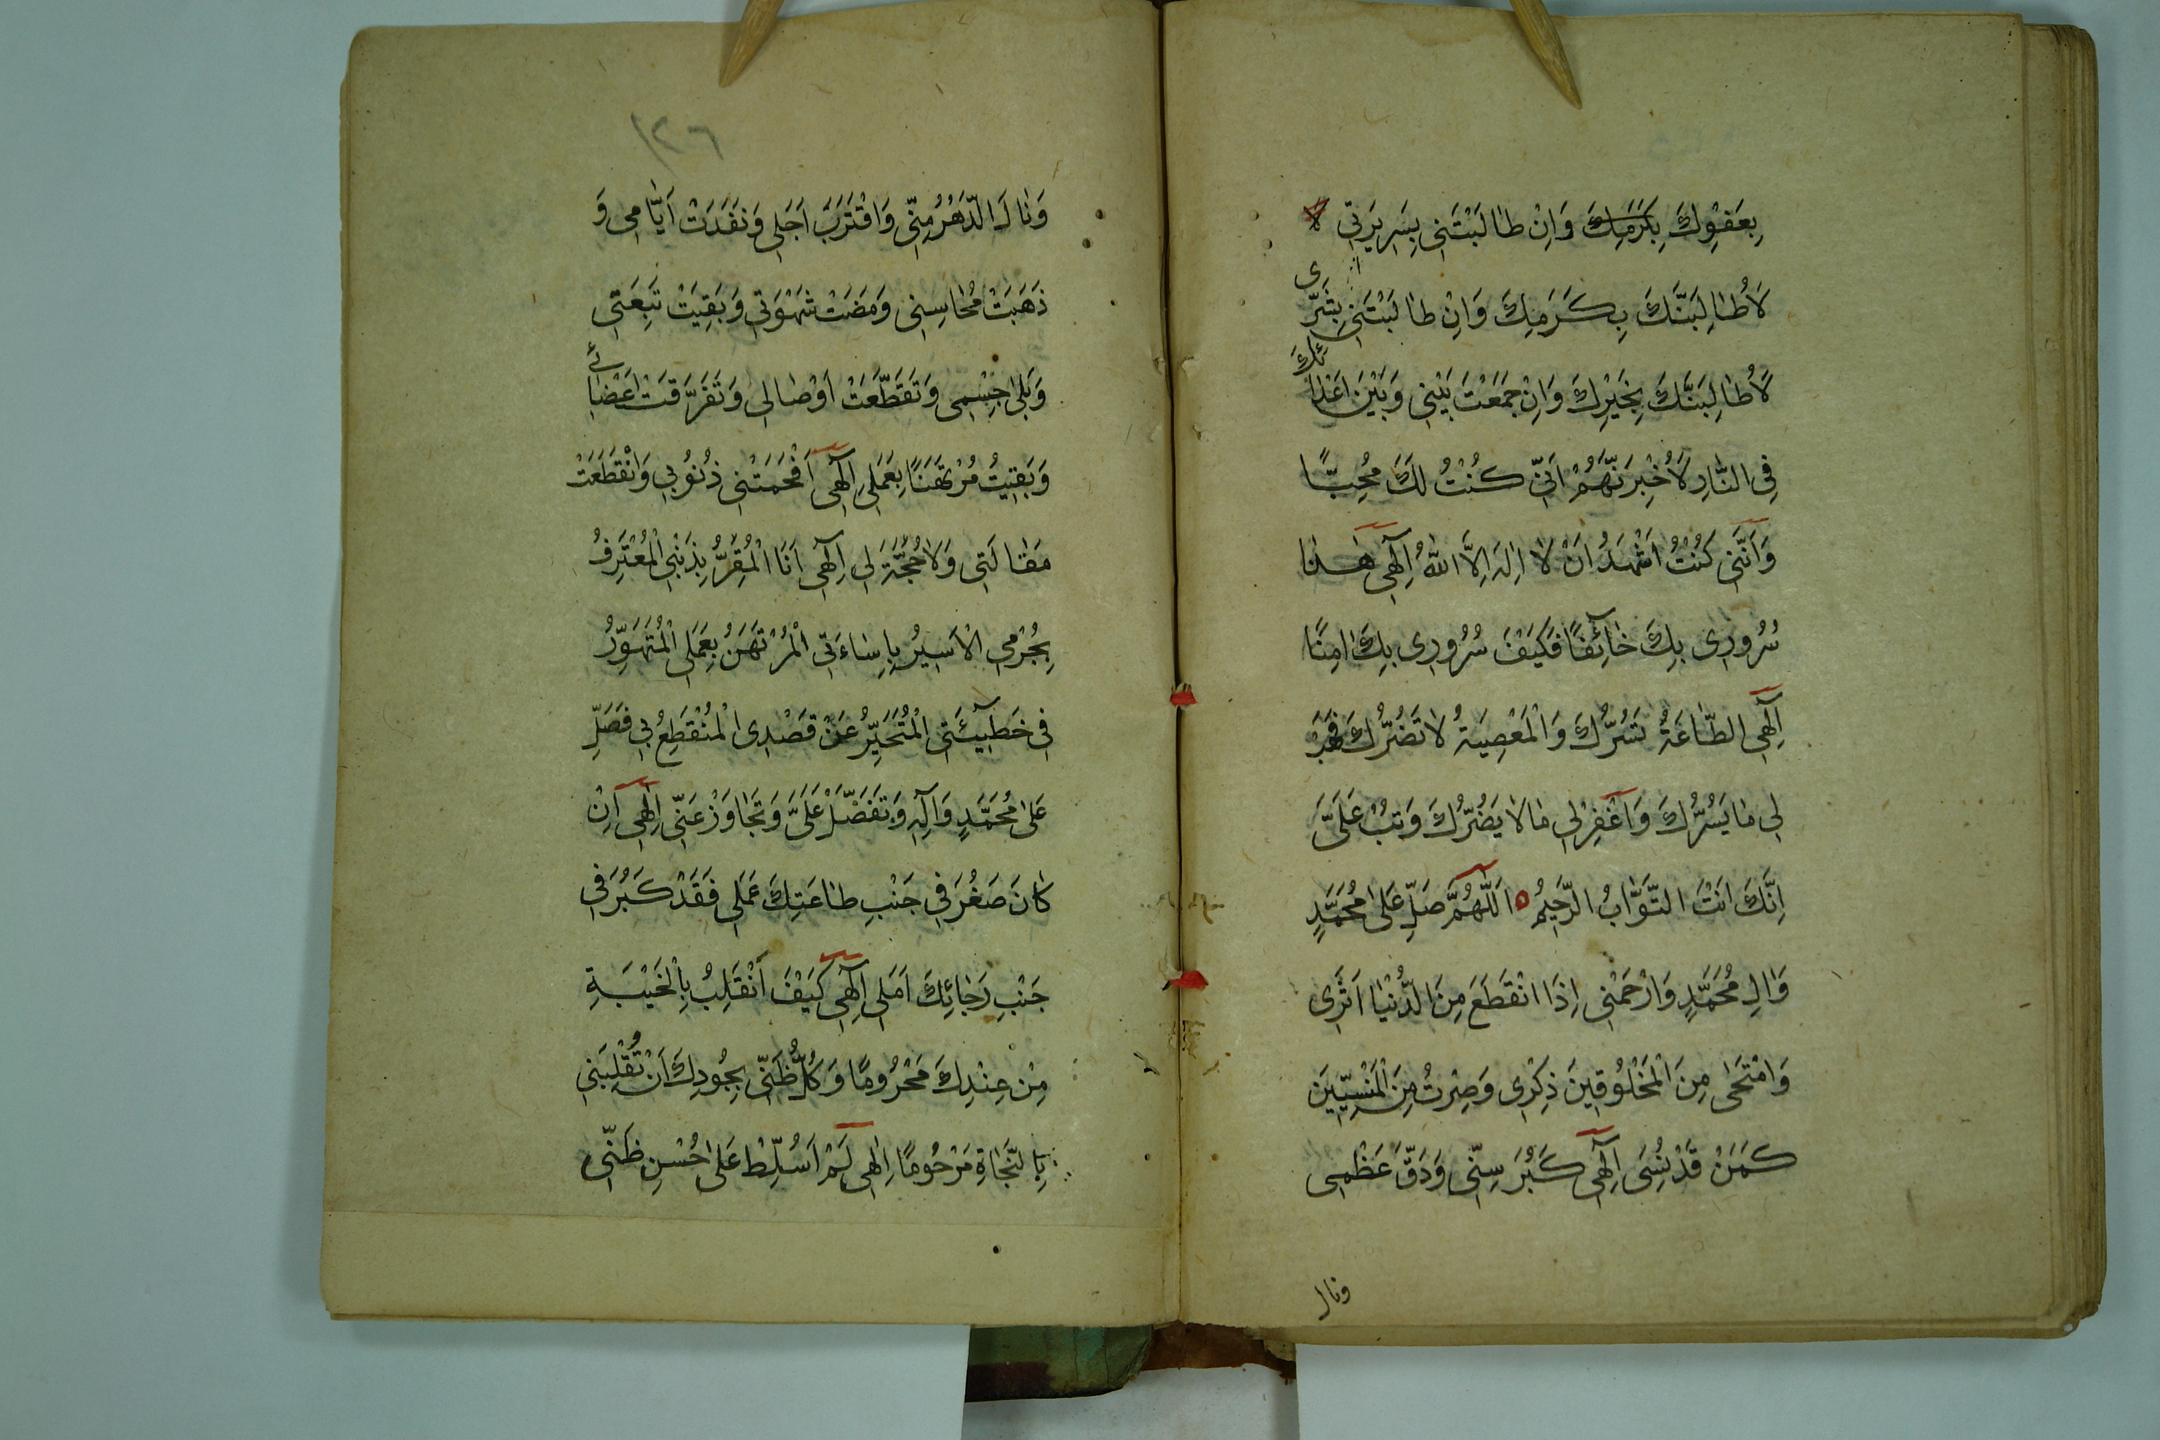 بِعَفْوِكَ بِكَرَمِكَ وَاِنْ طٰالَبْتَنِى بِسَرِيرَتِى
لَاُطٰالِبَنَّكَ بِكَرَمِكَ وَاِنْ طٰالَبْتَنِى بِشَرّى
لَاُطٰالِبَنَّكَ بِخَيْرِكَ وَاِنْ جَمَعْتَ بَيْنِى وَبَيْنَ اَعْدٰائِكَ
فِى النّٰارِ لَاُخْبِرَنَّهُمْ اَنِّى كُنْتُ لَكَ مُحِبًّا
وَاَنَّنِى كُنْتُ اَشْهَدُ اَنْ لٰا اِلٰهَ اِلَّا اللّٰهُ اِلٰهِى هٰذٰا
سُرُورِى بِكَ خٰائِفًا فَكَيْفَ سُرُورِى بِكَ اٰمِنًا
اِلٰهِى الطّٰاعَةُ تَسُرُّكَ وَالْمَعْصِيَةُ لٰا تَضُرُّكَ فَهَبْ
لِى مٰا يَسُرُّكَ وَاغْفِرْ لِى مٰا لٰا يَضُرُّكَ وَتُبْ عَلَىَّ
اِنَّكَ اَنْتَ التَّوّٰابُ الرَّحِيمُ اَللّٰهُمَّ صَلِّ عَلىٰ مُحَمَّدٍ
وَاٰلِ مُحَمَّدٍ وَارْحَمْنِى اِذَا انْقَطَعَ مِنَ الدُّنْيٰا اَثَرِى
وَامْتَحٰى مِنَ الْمَخْلُوقِينَ ذِكْرِى وَصِرْتُ مِنَ الْمَنْسِيِّينَ
كَمَنْ قَدْ نُسِىَ اِلٰهِى كَبُرَ سِنِّى وَدَقَّ عَظْمِى
ونال
١٢٦
وَنٰالَ الدَّهْرُ مِنِّى وَاقْتَرَبَ اَجَلِى وَنَفَدَتْ اَيّٰامِى وَ
ذَهَبَتْ مَحٰاسِنِى وَمَضَتْ شَهْوَتِى وَبَقِيَتْ تَبِعَتِى
وَبَلِىَ جِسْمِى وَتَقَطَّعَتْ اَوْصٰالِى وَتَفَرَّقَتْ اَعْضٰائِى
وَبَقِيتُ مُرْتَهَنًا بِعَمَلِى اِلٰهِى اَفْحَمَتْنِى ذُنُوبِى وَانْقَطَعَتْ
مَقٰالَتِى وَلٰا حُجَّةَ لِى اِلٰهِى اَنَا الْمُقِرُّ بِذَنْبِى الْمُعْتَرِفُ
بِجُرْمِى الْاَسِيرُ بِاِسٰاءَتِى الْمُرْتَهَنُ بِعَمَلِى الْمُتَهَوِّرُ
فِى خَطِيئَتِى الْمُتَحَيِّرُ عَنْ قَصْدِى الْمُنْقَطِعُ بِى فَصَلِّ
عَلىٰ مُحَمَّدٍ وَاٰلِهِ وَتَفَضَّلْ عَلَىَّ وَتَجٰاوَزْ عَنِّى اِلٰهِى اِنْ
كٰانَ صَغُرَ فِى جَنْبِ طٰاعَتِكَ عَمَلِى فَقَدْ كَبُرَ فِى
جَنْبِ رَجٰائِكَ اَمَلِى اِلٰهِى كَيْفَ اَنْقَلِبُ بِالْخَيْبَةِ
مِنْ عِنْدِكَ مَحْرُومًا وَكُلُّ ظَنِّى بِجُودِكَ اَنْ تُقْلِبَنِى
بِالنَّجٰاةِ مَرْحُومًا اِلٰهِى لَمْ اُسَلِّطْ عَلىٰ حُسْنِ ظَنِّى